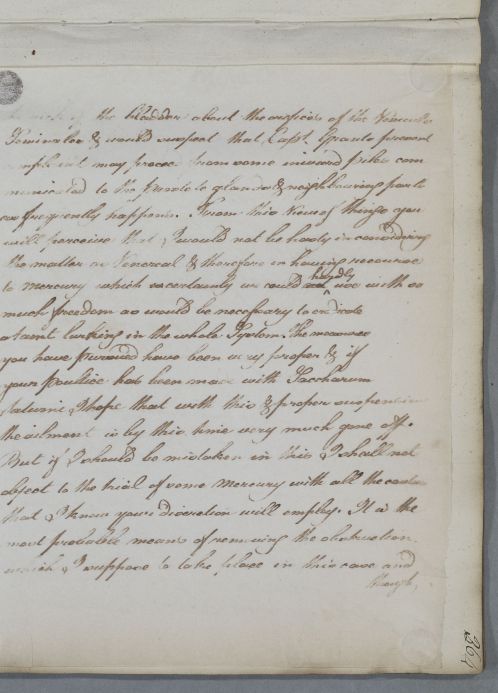 the bladder about the orifices of the Vesiculæ
Seminales & would suspect that Capt. Grants present
complaint may proceed from some inward piles com
municated to the prostate glands & neighbouring parts
as frequently happens. From this view of things you
will perceive that I would not be hasty in considering
the matter as Venereal & therefore in having recourse
to mercury which certainly we could hardly use with so
much freedom as would be necessary to eradicate
a taint lurking in the whole System. The measures
you have pursued have been very proper & if
your poultice has been made with Saccharum
Saturni I hope that with this & proper suspension
the ailment is by this time very much gone off.
But if I should be mistaken in this I shall not
object to the trial of some mercury with all the caution
that I know your discretion will employ. It is the
most probable means of removing the obstruction
which I suppose to take place in this case and
though
364